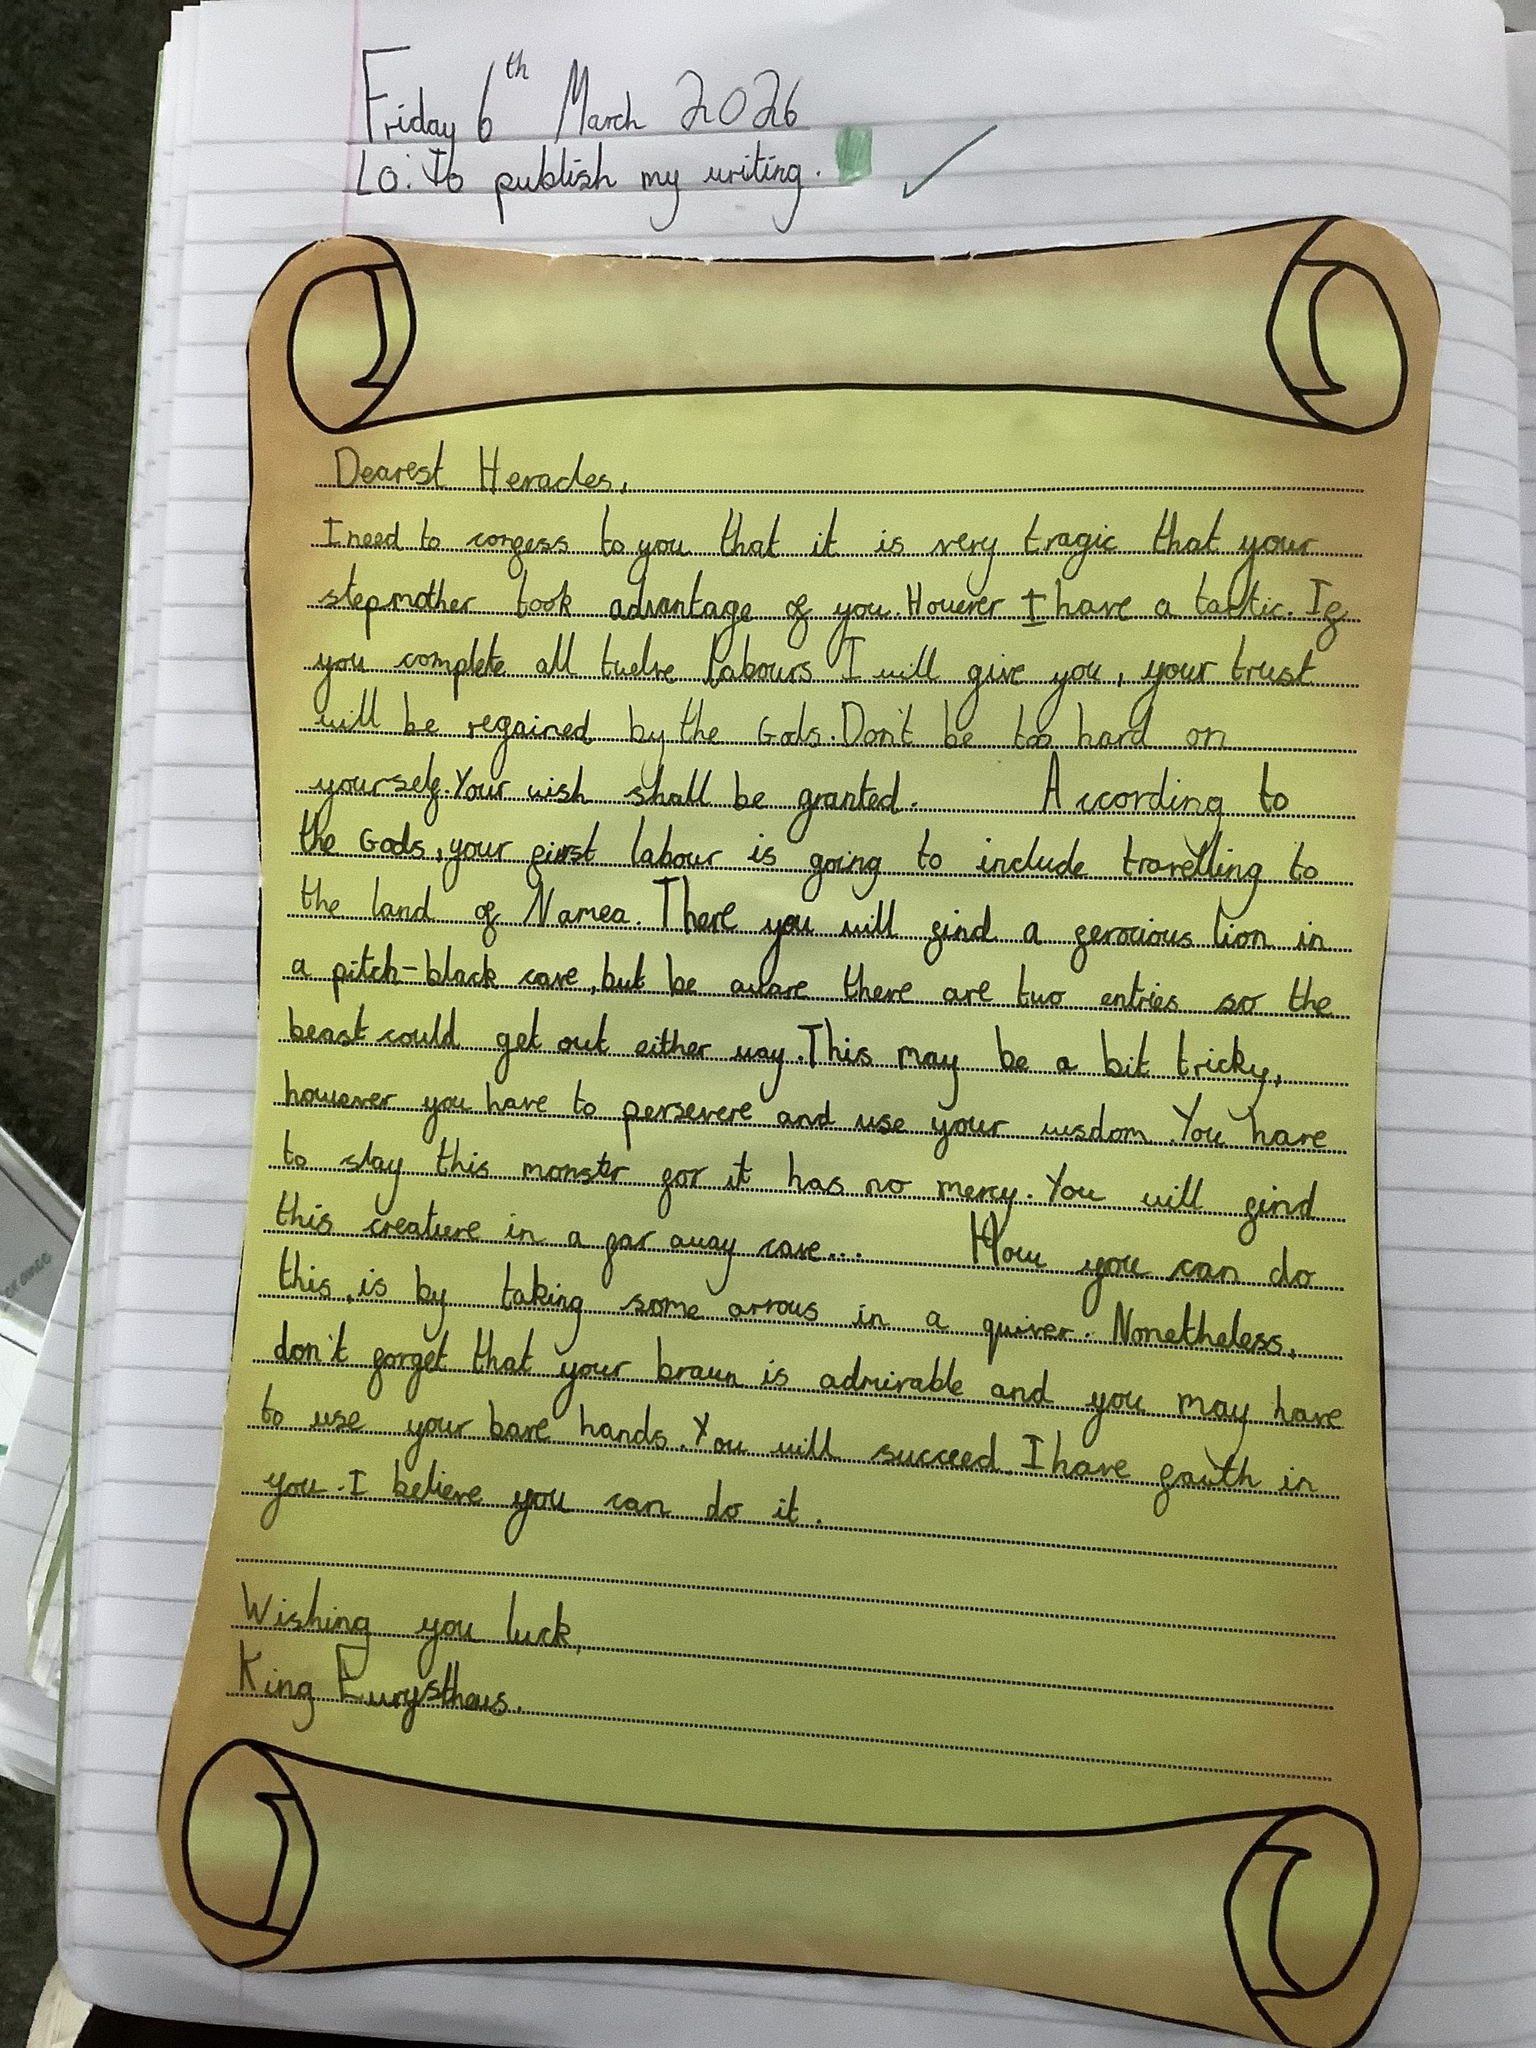 Friday 6th March 2026
LO: To publish my writing.
Dearest Heracles,
I need to confess to you that it is very tragic that your
stepmother took advantage of you. However I have a tactic. If
you complete all twelve labours I will give you, your trust
will be regained by the Gods. Don't be too hard on
yourself. Your wish shall be granted. According to
the Gods, your first labour is going to include travelling to
the land of Namea. There you will find a ferocious lion in
a pitch-black cave, but be aware there are two entries so the
beast could get out either way. This may be a bit tricky,
however you have to persevere and use your wisdom. You have
to slay this monstr for it has no mercy. You will find
this creature in a far away cave... How you can do
this, is by taking some arrows in a quiver. Nonetheless,
don't forget that your braun is admirable and you may have
to use your bare hands. You will succeed. I have faith in
you. I believe you can do it.
Wishing you luck,
King Eurystheus.